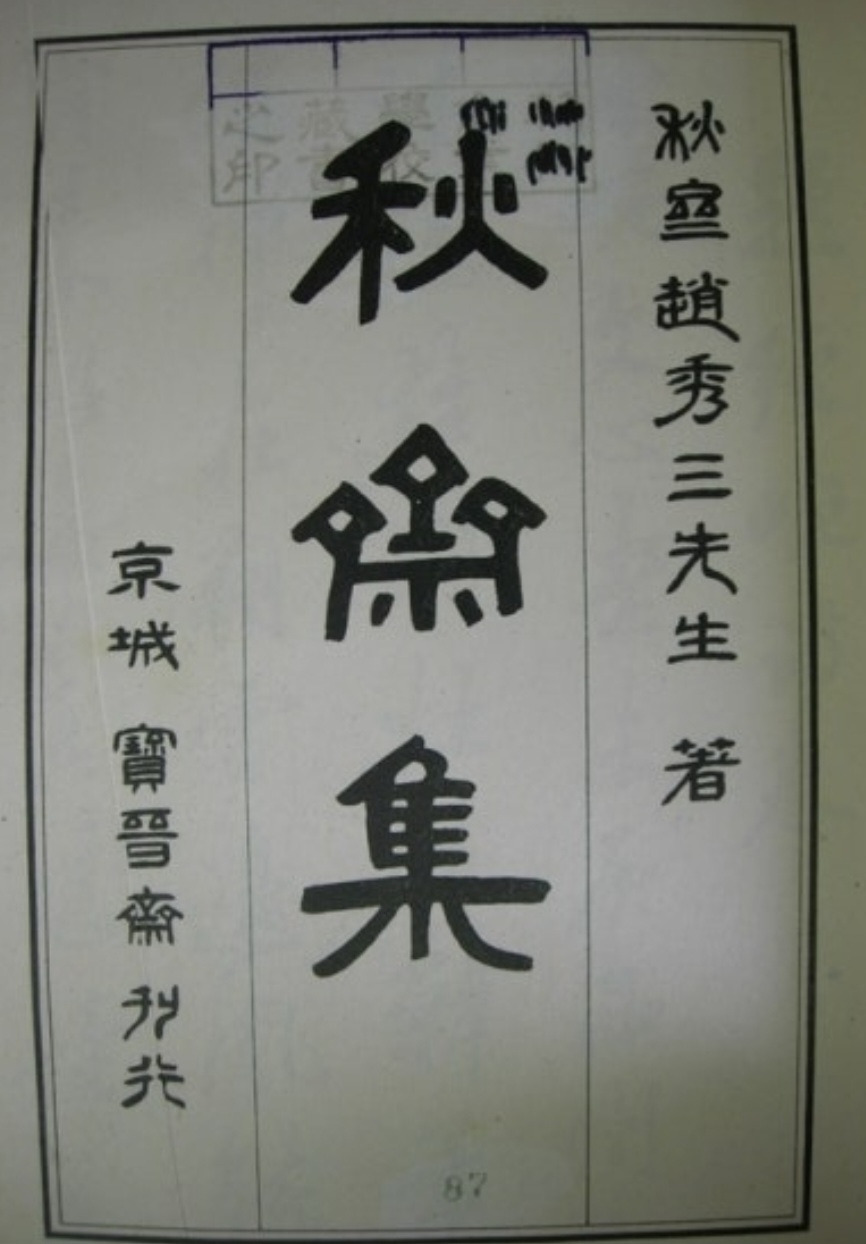 秋齋趙秀三先生 著
秋齋集
京城 寶晉齋 刊行
學校
藏書
之印
87